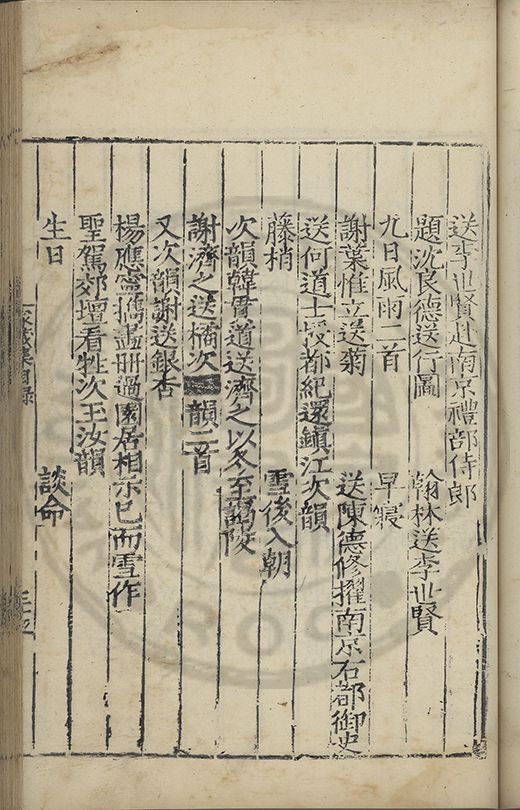 送李世賢赴南京禮部侍郎
題沈良德送行圖 翰林送李世賢
九日風雨二首 早寢
謝葉惟立送菊 送陳德修擢南京右都御史
送何道士授都紀還鎮江次韻
藤梢 雪後入朝
次韻韓貫道送濟之以冬至謁陵
謝濟之送橘次韻二首
又次韻謝送銀杏
楊應寧攜畫冊過園居相示已而雪作
聖駕郊壇看牲次王汝韻
生日 談命